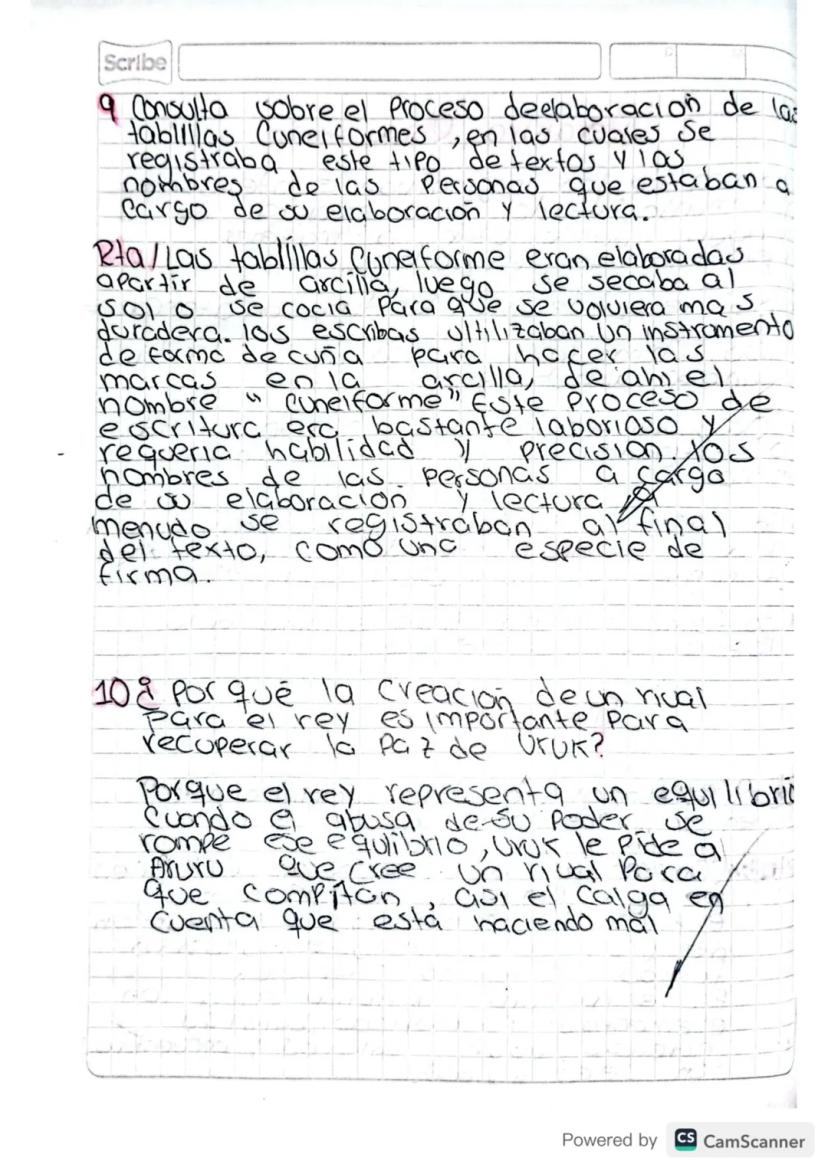 Scribe
9 Consulta sobre el Proceso deelaboracion de las
tablillas Cuneiformes, en las cuales se
registraba este tipo de textos y los
nombres de las Personas que estaban a
cargo de su elaboración y lectura.
Rta/Las tablillas Cuneiforme eran elaboradas
apartir de arcilla, luego se secaba al
sol o se cocia Para que se volviera mas
duradera. los escribas ultilizaban un instrumento
de forma de cuña para hacer las
marcas en la arcilla, de ahi el
nombre "cuneiforme" Este Proceso de
escritura era bastante laborioso y
requeria habilidad y precision. Los
nombres de las Personas a cargo
de su elaboracion y lectura a
menudo se registraban al final
del texto, como una especie de
firma.
10 ¿ Por qué la Creación de un rival
Para el rey es importante Para
recuperar la Paz de Uruk?
Porque el rey representa un equilibrio
Cuando el abusa de su Poder se
rompe ese equlibrio, uruk le Pide a
Aruru que cree un rival Para
que compitan, asi el caiga en
Cuenta que está haciendo mal
Powered by CS CamScanner